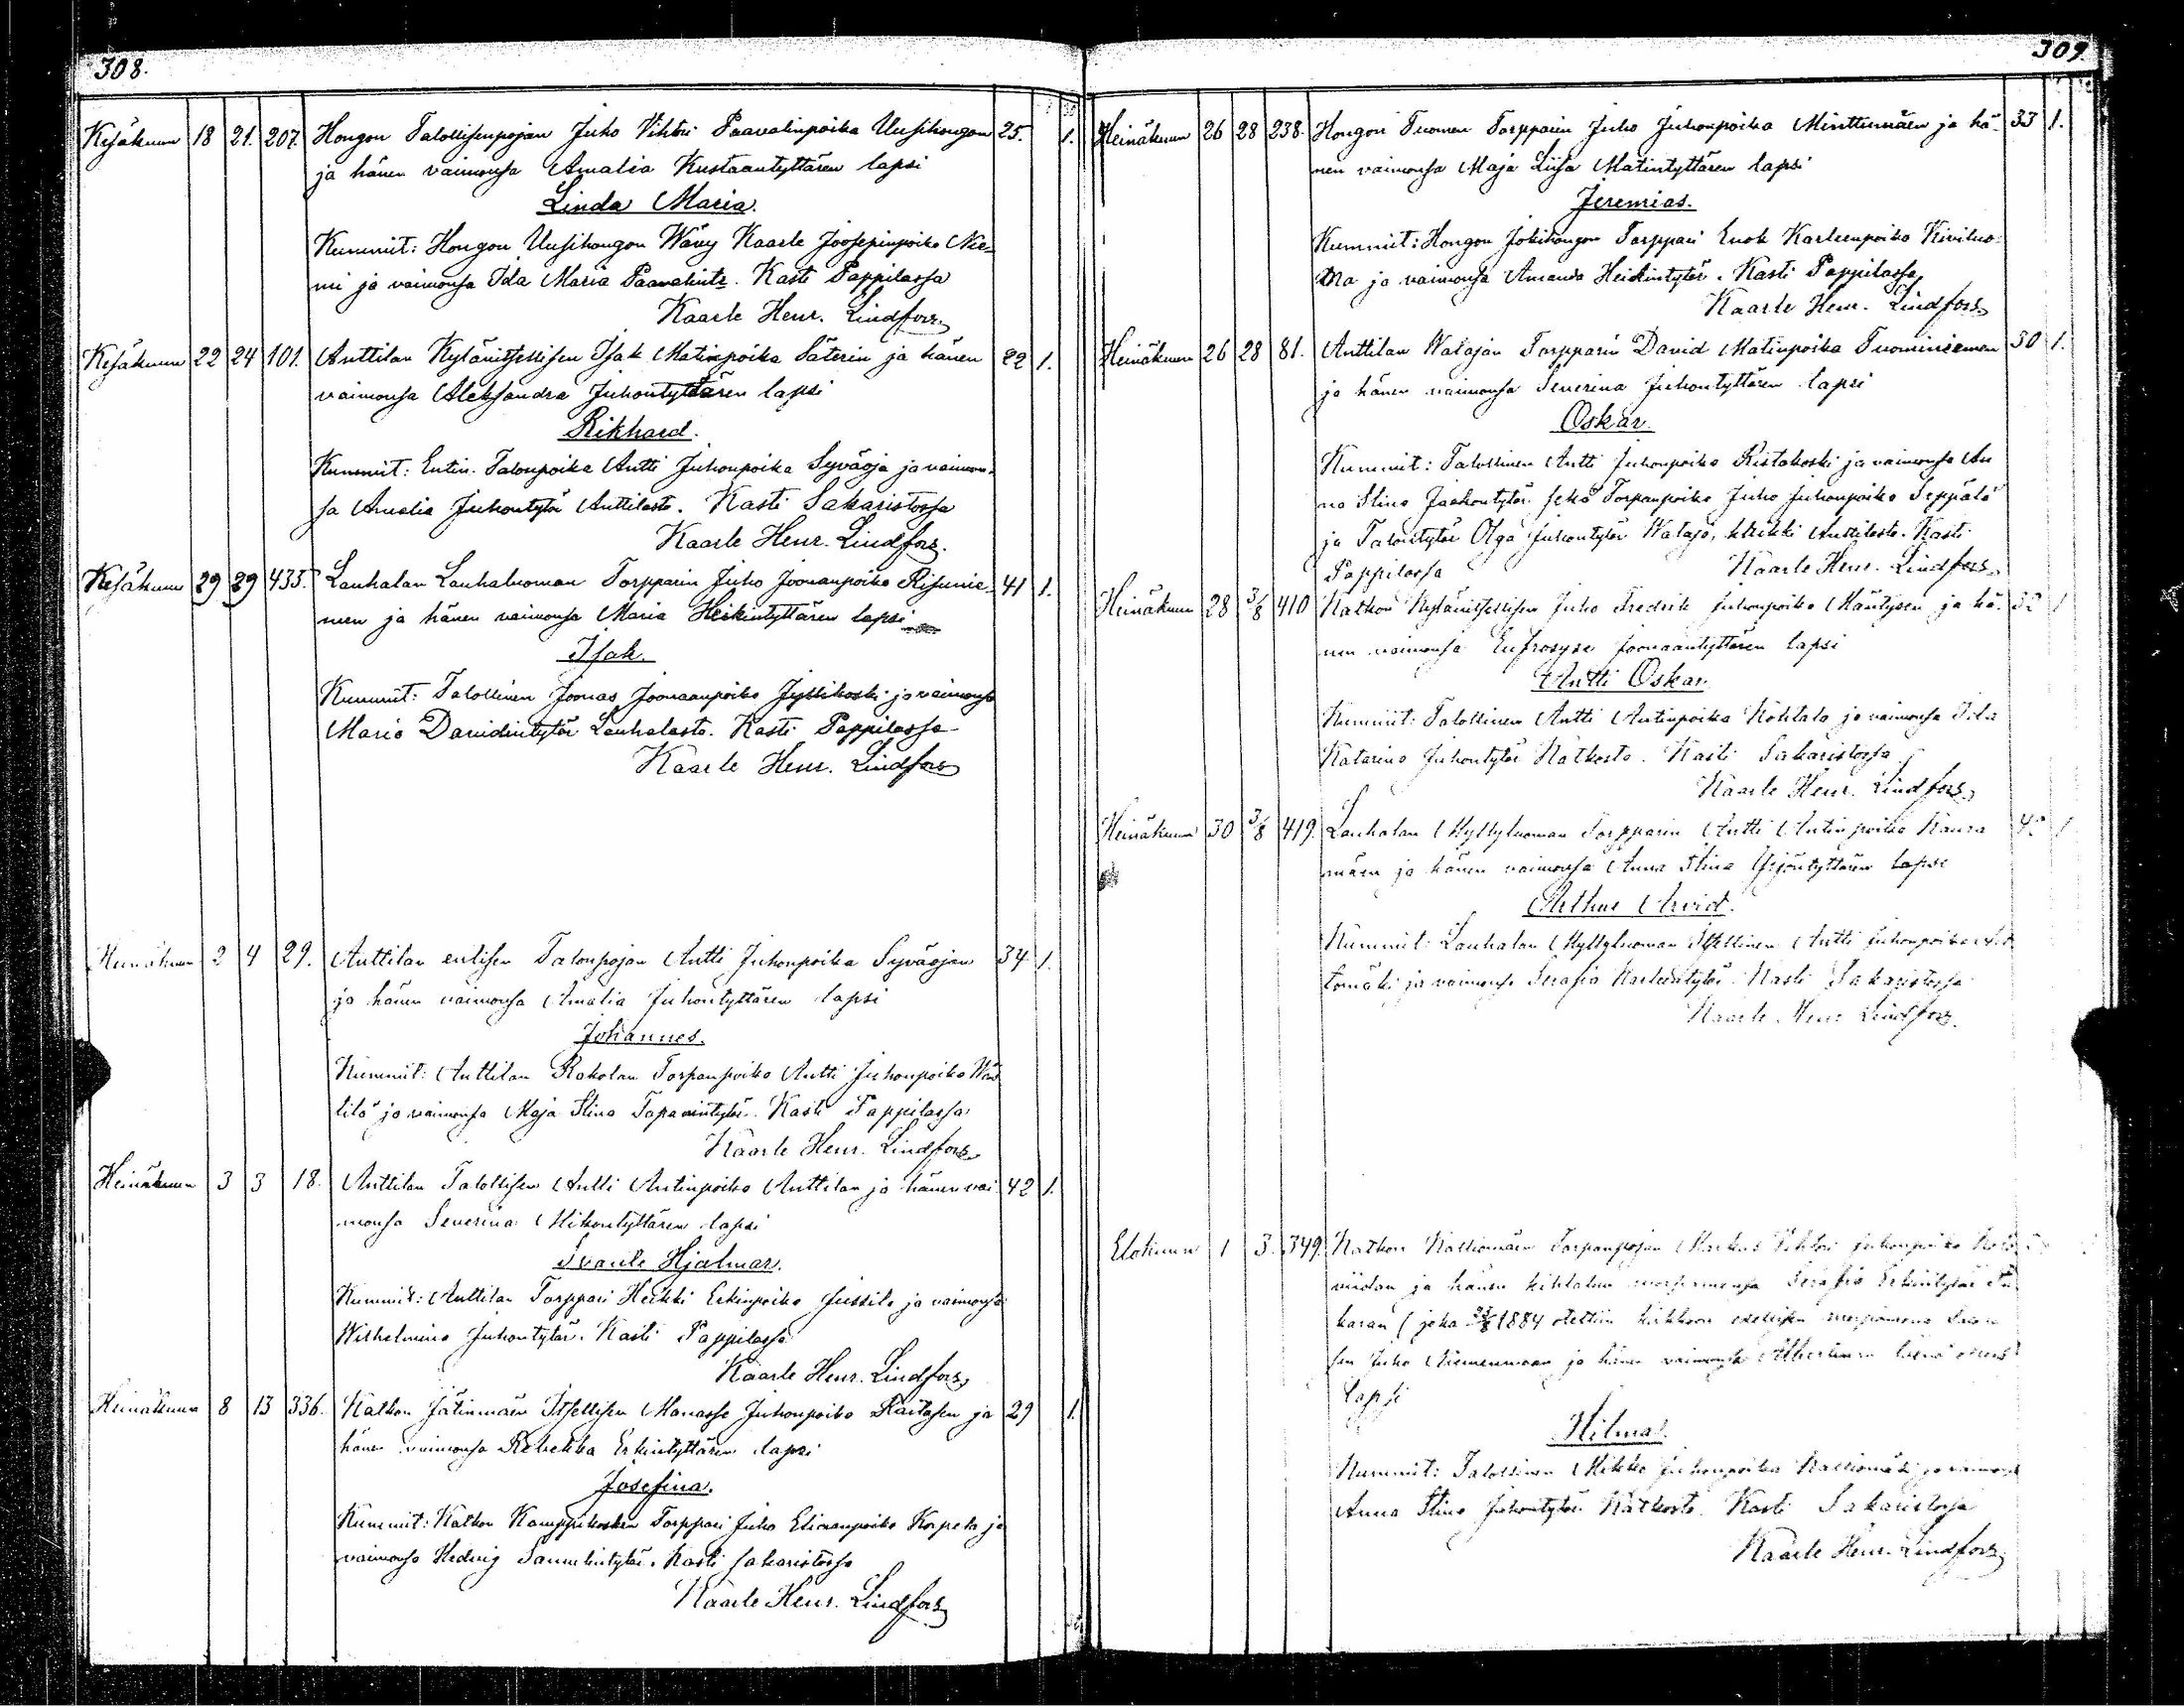 308.
Kesäkuun 18 21. 207. Hongon Talollisenpojan Juho Vihtori Paavalinpoika Uusihongon 25. 1.
ja hänen vaimonsa Amalia Kustaantyttären lapsi
Linda Maria.
Kummit: Hongon Uusihongon Wävy Kaarle Joosepinpoika Nie-
mi ja vaimonsa Ida Maria Paavalintr. Kasti Pappilassa
Kaarle Henr. Lindfors.
Kesäkuun 22 24 101. Anttilan Kylänitsellisen Isak Matinpoika Säterin ja hänen 22 1.
vaimonsa Aleksandra Juhontyttären lapsi
Rikhard.
Kummit: Entin. Talonpoika Antti Juhonpoika Syväoja ja vaimon-
sa Amalia Juhontytär Anttilasta. Kasti Sakaristossa
Kaarle Henr. Lindfors.
Kesäkuun 29 29 435. Lauhalan Lauhaluoman Torpparin Juho Joonanpoika Risunie- 41 1.
men ja hänen vaimonsa Maria Heikintyttären lapsi
Isak.
Kummit: Talollinen Joonas Joonaanpoika Jyllikoski ja vaimonsa
Maria Davidintytär Lauhalasta. Kasti Pappilassa
Kaarle Henr. Lindfors
Heinäkuun 2 4 29. Anttilan entisen Talonpojan Antti Juhonpoika Syväojan 34 1.
ja hänen vaimonsa Amalia Juhontyttären lapsi
Johannes.
Kummit: Anttilan Rakolan Torpanpoika Antti Juhonpoika
ja vaimonsa Maja Stina Tapanintytär. Kasti Pappilassa
Kaarle Henr. Lindfors.
Heinäkuun 3 3 18. Anttilan Talollisen Antti Antinpoika Anttilan ja hänen vai- 42 1.
monsa Severina Mikontyttären lapsi
Ivarile Hjalmar.
Kummit: Anttilan Torppari Heikki Erkinpoika Jussila ja vaimonsa
Wilhelmina Juhontytär. Kasti Pappilassa
Kaarle Henr. Lindfors
Heinäkuun 8 13 336. Kätkän Jätinmäen Itsellisen Manasse Juhonpoika Raitasen ja 29 1.
hänen vaimonsa Rebekka Erkintyttären lapsi
Josefina.
Kummit: Kätkän Kamppikosken Torppari Juho Eliaanpoika Korpela ja
vaimonsa Hedvig Samulintytär. Kasti sakaristossa
Kaarle Henr. Lindfors
309.
Heinäkuun 26 28 238. Hongon Tuomen Torpparin Juho Juhonpoika Minttumäen ja hä- 33 1.
nen vaimonsa Maja Liisa Matintyttären lapsi
Jeremias.
Kummit: Hongon Jokihongon Torppari Enok Karleenpoika Kiviluo-
ma ja vaimonsa Amanda Heikintytär. Kasti Pappilassa
Kaarle Henr. Lindfors.
Heinäkuun 26 28 81. Anttilan Watajan Torpparin David Matinpoika Tuominiemen 30 1.
ja hänen vaimonsa Severina Juhontyttären lapsi
Oskar.
Kummit: Talollinen Antti Juhonpoika Ristakoski ja vaimonsa An
na Stina Jaakontytär sekä Torpanpoika Juho Juhonpoika Seppälä
ja Talontytär Olga Juhontytär Wataja, kaikki Anttilasta. Kasti
Pappilassa Kaarle Henr. Lindfors.
Heinäkuun 28 3/8 410 Kätkän Kylänitsellisen Juho Fredrik Juhonpoika Mäntysen ja hä- 32 1
nen vaimonsa Eufrosyne Joonaantyttären lapsi
Antti Oskar.
Kummit: Talollinen Antti Antinpoika Kohtala ja vaimonsa Iida
Katarina Juhontytär Kätkästä. Kasti Sakaristossa
Kaarle Henr. Lindfors.
Heinäkuun 30 3/8 419. Lauhalan Myllyluoman Torpparin Antti Antinpoika Kaura
mäen ja hänen vaimonsa Anna Stina Yrjöntyttären lapsi
Arthur Arvid.
Kummit: Lauhalan Myllyluoman Itsellinen Antti Juhonpoika
tomäki ja vaimonsa Serafia Karleentytär. Kasti Sakaristossa
Kaarle Henr. Lindfors.
Elokuun 1 3. 349. Kätkän Kalliomäen Torpanpojan Markus Vihtori Juhonpoika
ja hänen kihlatun morsiamensa Serafia Erkintytär
(joka 1884 otettiin kirkkoon
Juho Niemenmaan ja hänen vaimonsa Albertinan
lapsi
Hilma.
Kummit: Talollinen Mikki Juhonpoika Kalliomäki ja vaimonsa
Anna Stina Juhontytär Kätkästä. Kasti Sakaristossa
Kaarle Henr. Lindfors